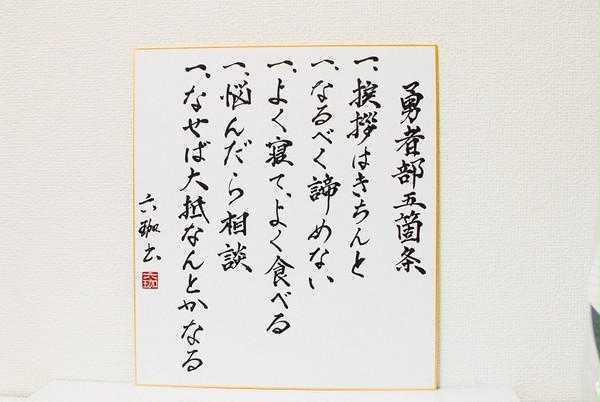 勇者部五箇条
一、挨拶はきちんと
一、なるべく諦めない
一、よく寝て、よく食べる
一、悩んだら相談
一、なせば大抵なんとかなる
六珈书
六珈